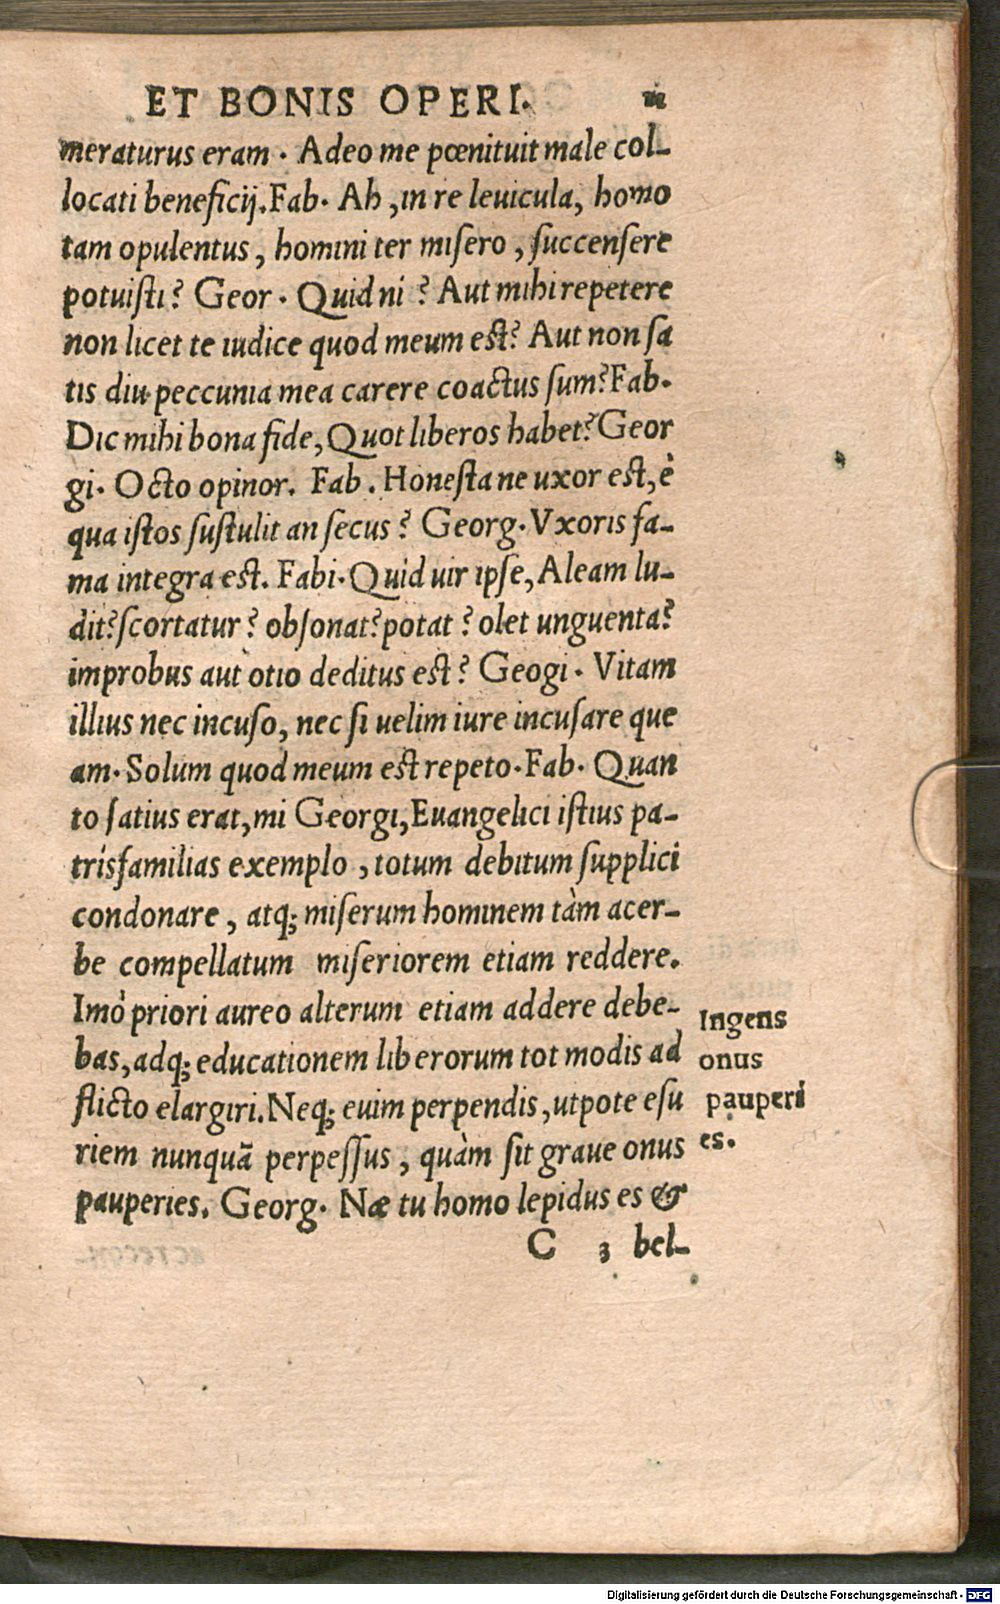 ET BONIS OPERI.
meraturus eram. Adeo me pœnituit male col-
locati beneficij. Fab. Ah, in re leuicula, homo
tam opulentus, homini ter misero, succensere
potuisti? Geor. Quid ni? Aut mihi repetere
non licet te iudice quod meum est? Aut non sa
tis diu peccunia mea carere coactus sum? Fab.
Dic mihi bona fide, Quot liberos habet? Geor
gi. Octo opinor. Fab. Honesta ne uxor est, è
qua istos sustulit an secus? Georg. Vxoris fa-
ma integra est. Fabi. Quid uir ipse, Aleam lu-
dit? scortatur? obsonat? potat? olet unguenta?
improbus aut otio deditus est? Geogi. Vitam
illius nec incuso, nec si uelim iure incusare que
am. Solum quod meum est repeto. Fab. Quan
to satius erat, mi Georgi, Euangelici istius pa-
trisfamilias exemplo, totum debitum supplici
condonare, atq; miserum hominem tàm acer-
be compellatum miseriorem etiam reddere.
Imò priori aureo alterum etiam addere debe-
bas, adq; educationem liberorum tot modis ad
flicto elargiri. Neq; euim perpendis, utpote esu
riem nunquã perpessus, quàm sit graue onus
pauperies. Georg. Næ tu homo lepidus es &
C 3 bel-
Ingens
onus
pauperi
es.
Digitalisierung gefördert durch die Deutsche Forschungsgemeinschaft - DFG